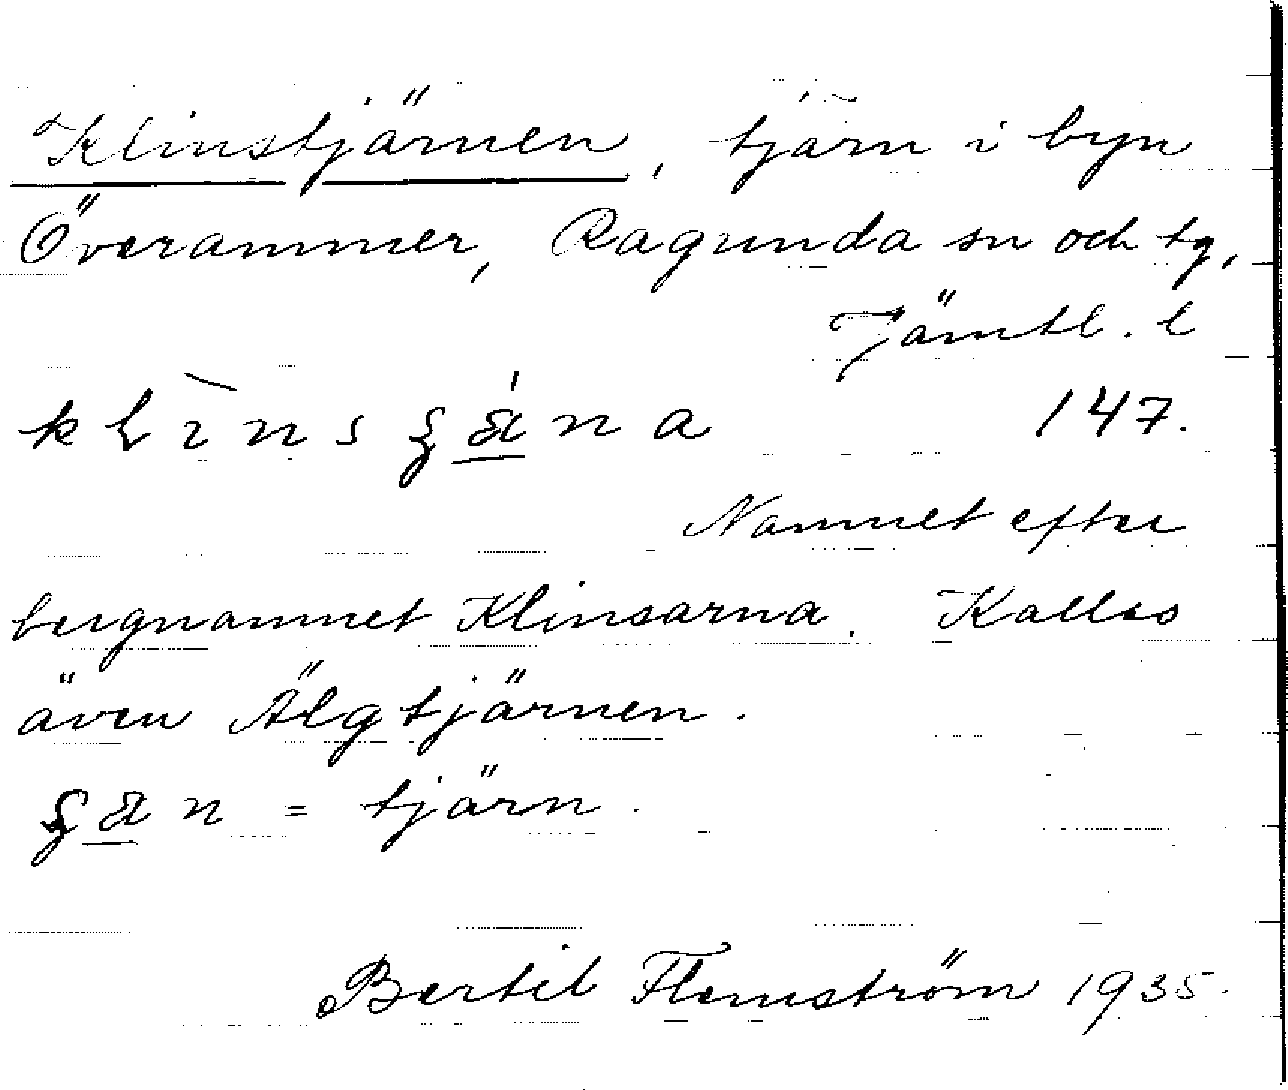 Klinstjärnen, tjärn i byn
Överammer, Ragunda sn och tg,
Jämtl. l
147.
Namnet efter
bergnamnet Klinsarna. Kallas
även Älgtjärnen.
= tjärn.
Bertil Flemström 1935.